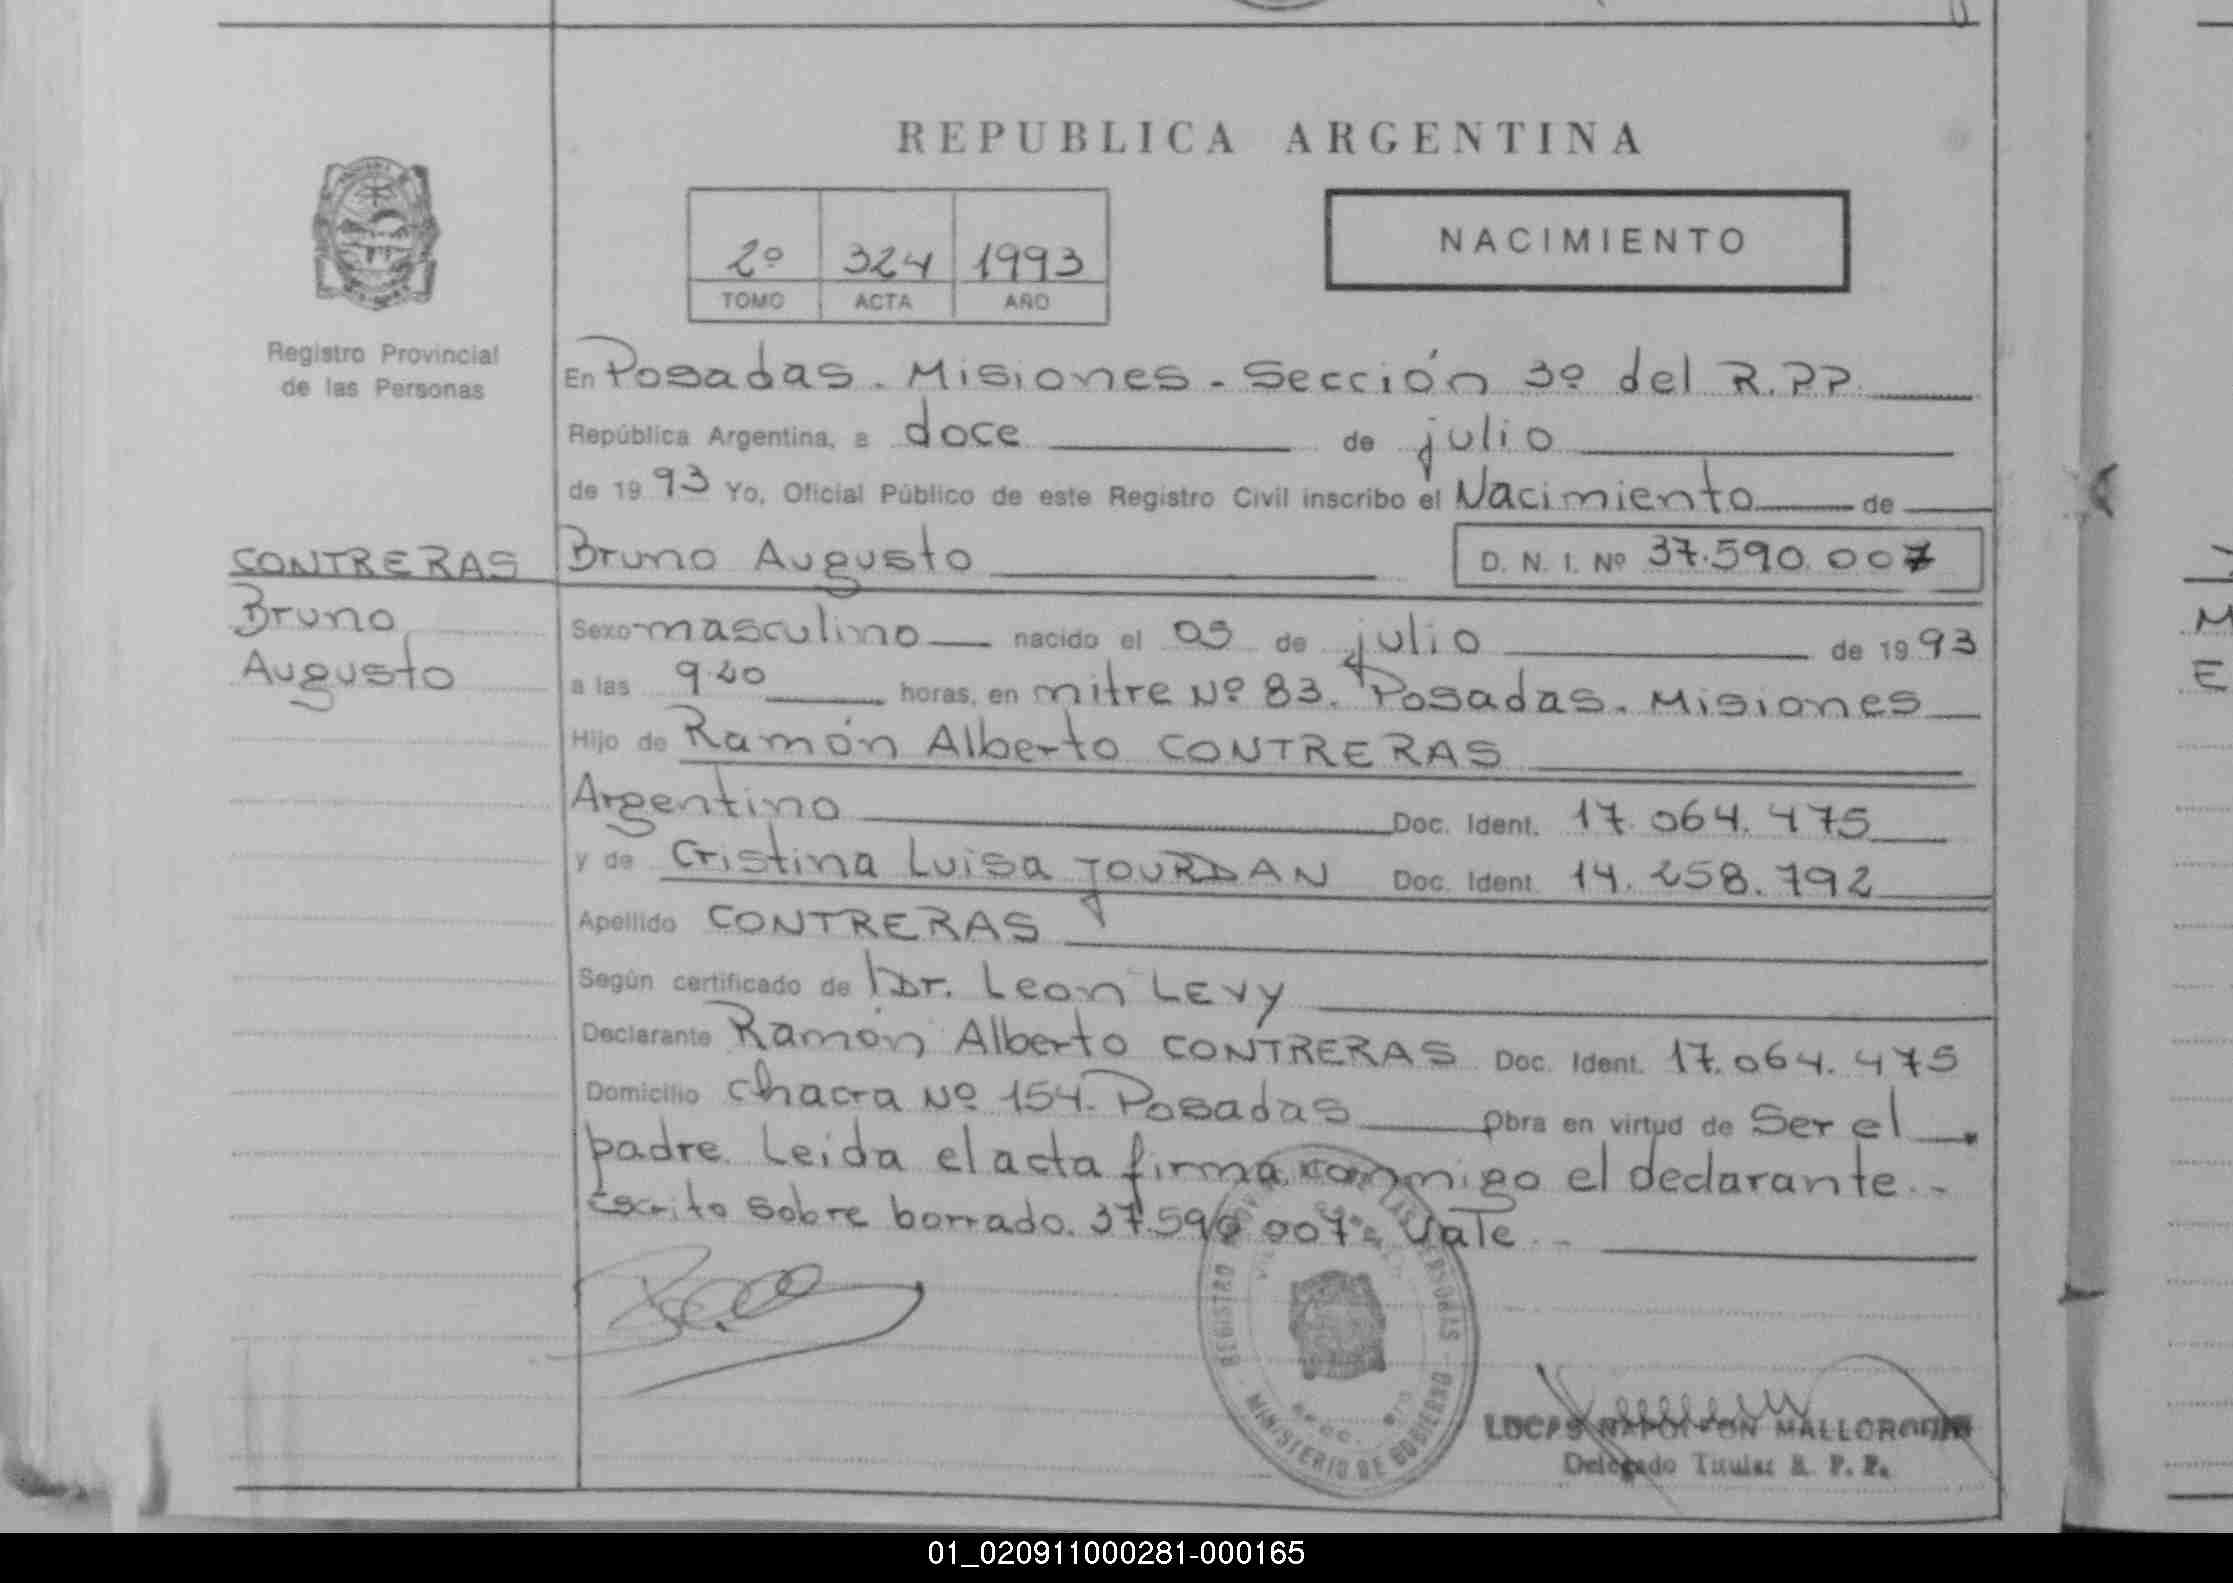 REPUBLICA ARGENTINA
2º 324 1993
TOMO ACTA AÑO
NACIMIENTO
Registro Provincial
de las Personas
En Posadas. Misiones. Sección 3º del R.P.P.
República Argentina, a doce de julio
de 1993 Yo, Oficial Público de este Registro Civil inscribo el Nacimiento de
CONTRERAS
Bruno
Augusto
Bruno Augusto D. N. I. Nº 37.590.007
Sexo masculino nacido el 05 de julio de 1993
a las 9.20 horas, en mitre Nº 83. Posadas. Misiones
Hijo de Ramón Alberto CONTRERAS
Argentino Doc. Ident. 17.064.475
y de Cristina Luisa JOURDAN Doc. Ident. 14.258.792
Apellido CONTRERAS
Según certificado de Dr. Leon LEVY
Declarante Ramón Alberto CONTRERAS Doc. Ident. 17.064.475
Domicilio chacra Nº 154. Posadas Obra en virtud de Ser el
padre. Leida el acta firma conmigo el declarante..
Escrito sobre borrado. 37.590.007. Vale..
REGISTRO LAS PERSONAS
MINISTERIO DE GOBIERNO
LUCAS NAPOLEON
Delegado Titular R. P. P.
01_020911000281-000165